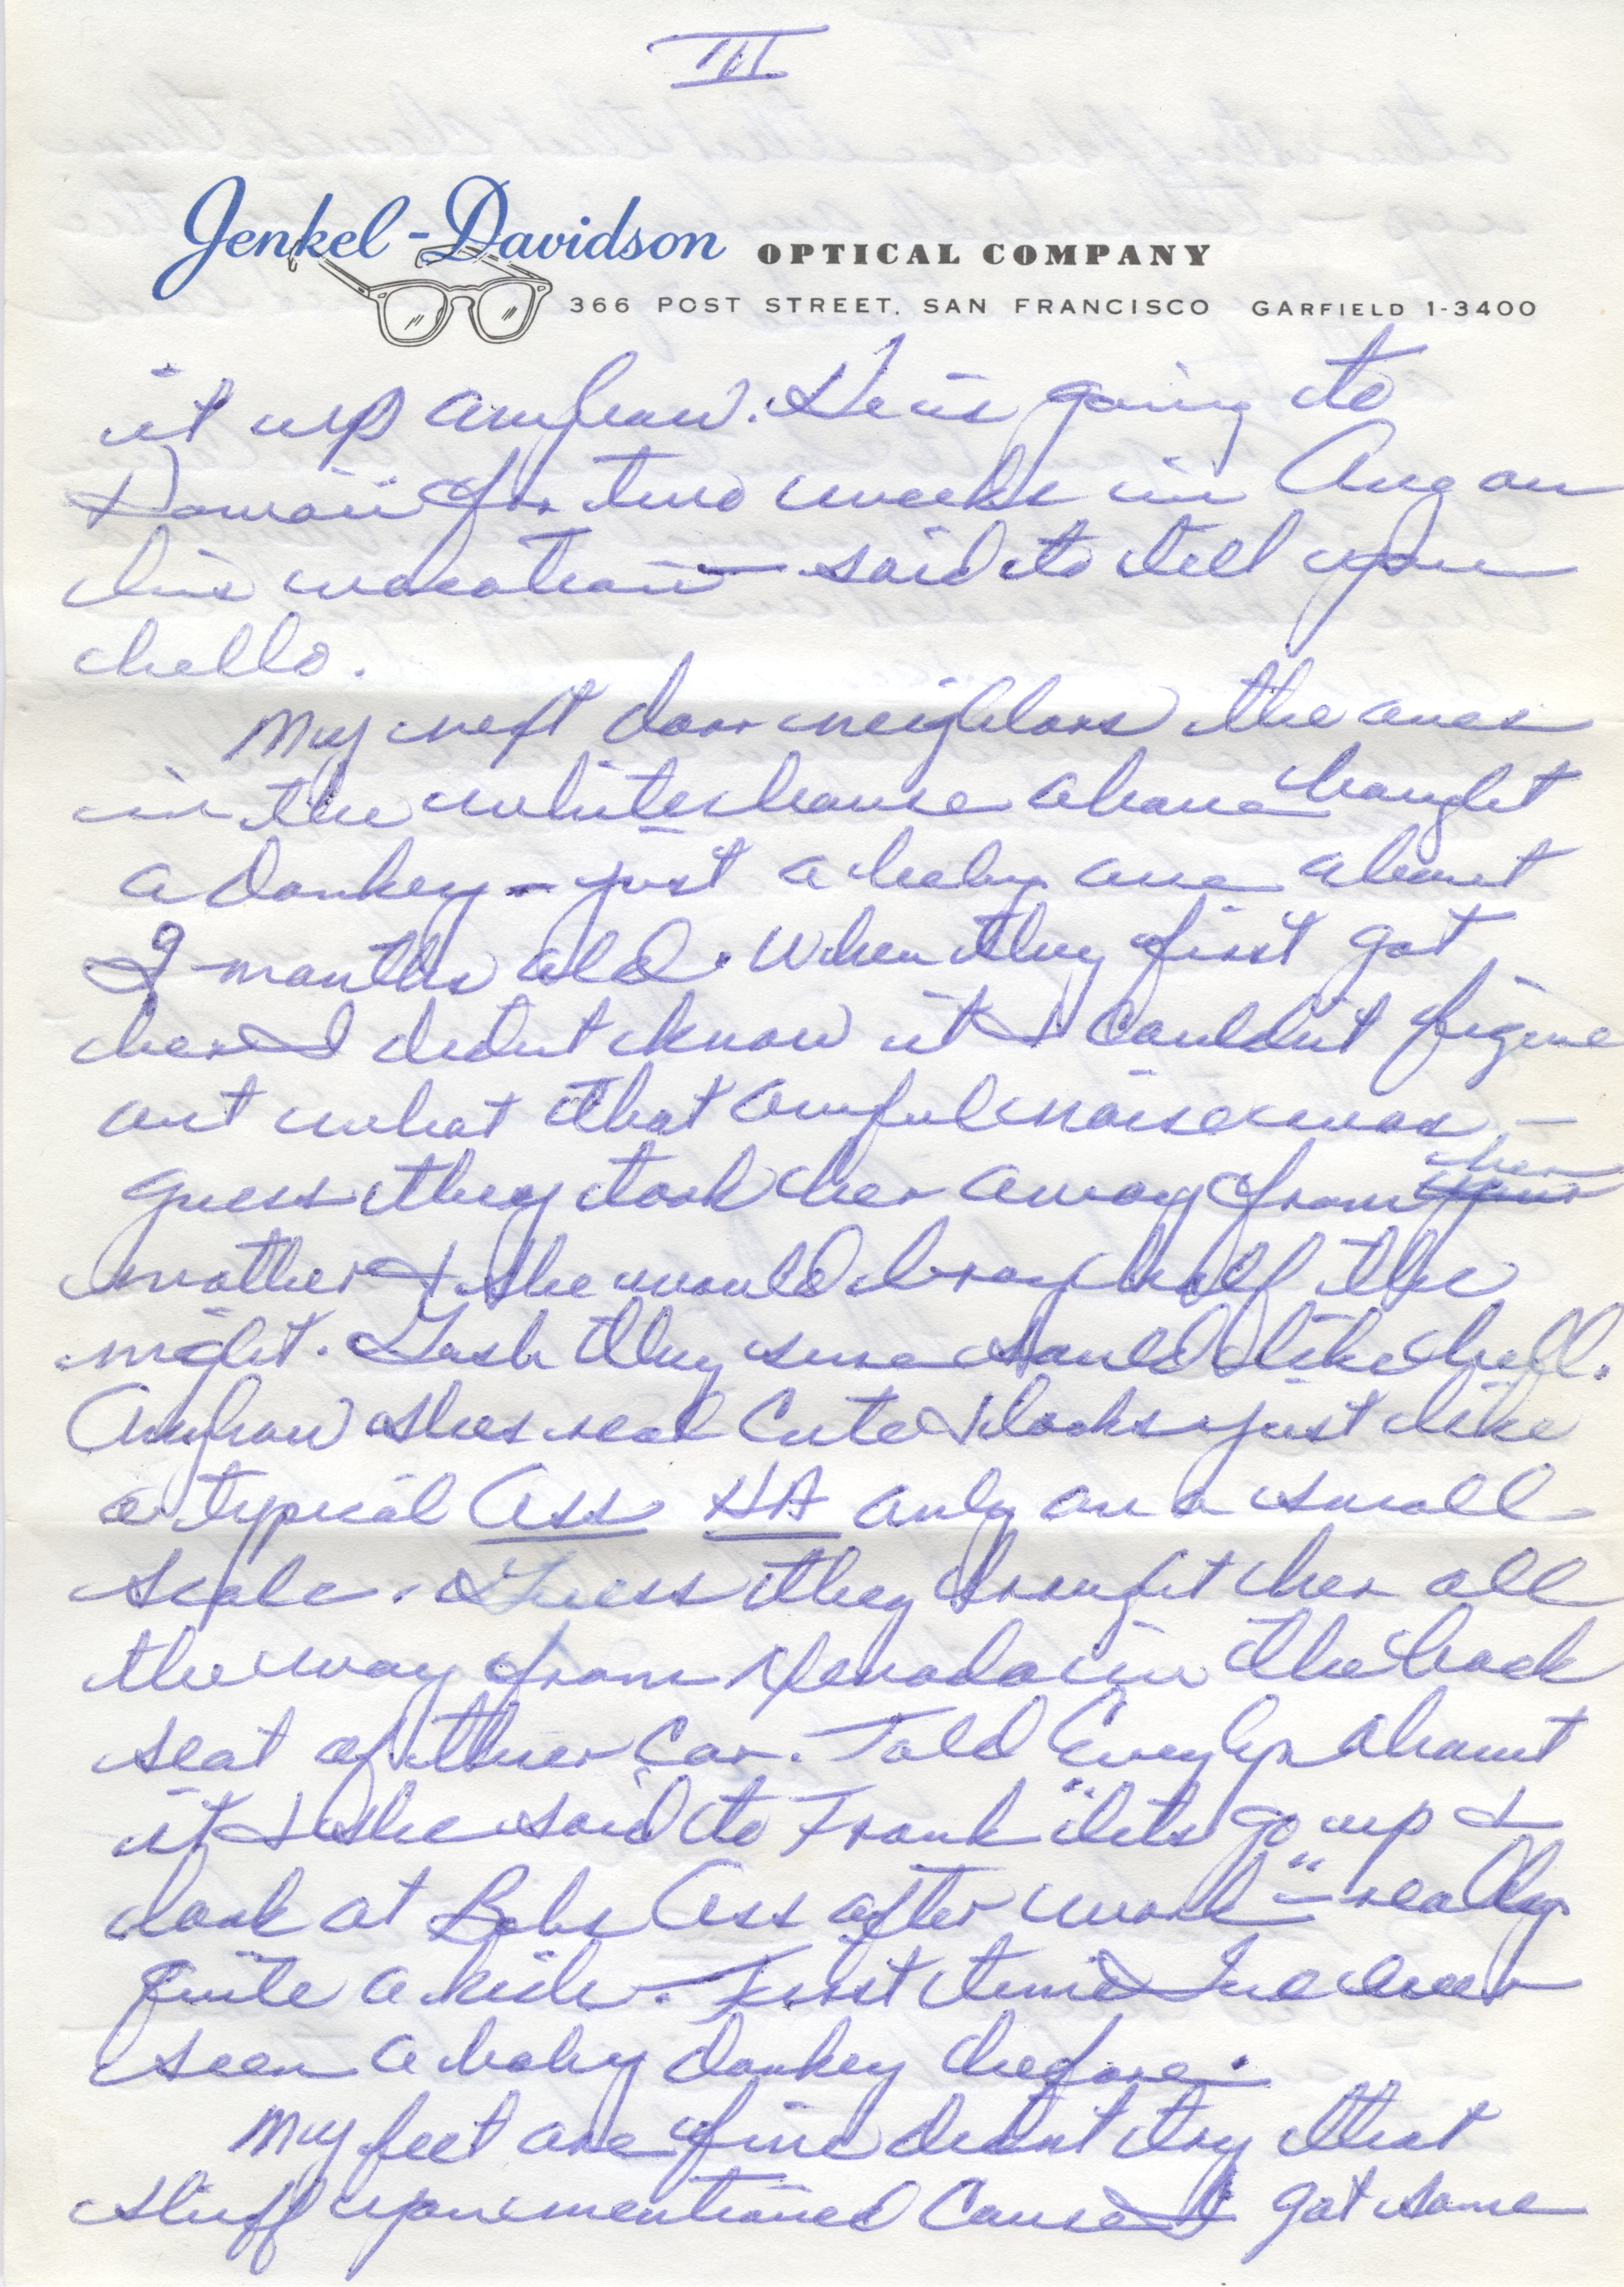 III
Jenkel-Davidson OPTICAL COMPANY
366 POST STREET, SAN FRANCISCO GARFIELD 1-3400
it up anyhow. He is going to
Hawaii for two weeks in Aug on
his vacation – said to tell you
hello.
My next door neighbors the ones
in the white house above bought
a donkey – just a baby one about
9 months old. When they first got
her I didnt know it & couldn't figure
out what that awful noise was –
guess they took her away from her
mother & she would bray half the
night. Gosh they sure sound like hell.
Anyhow shes real cute & looks just like
a typical Ass HA only on a small
scale. Guess they brought her all
the way from Nevada in the back
seat of their car. Told Evelyn about
it & she said to Frank "lets go up &
look at Bobs Ass after work" – really
quite a kick. First time Ive ever
seen a baby donkey before.
My feet are fine didnt try that
stuff you mentioned cause I got some